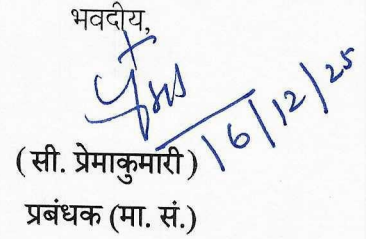 भवदीय,
16/12/25
(सी. प्रेमाकुमारी)
प्रबंधक (मा. सं.)